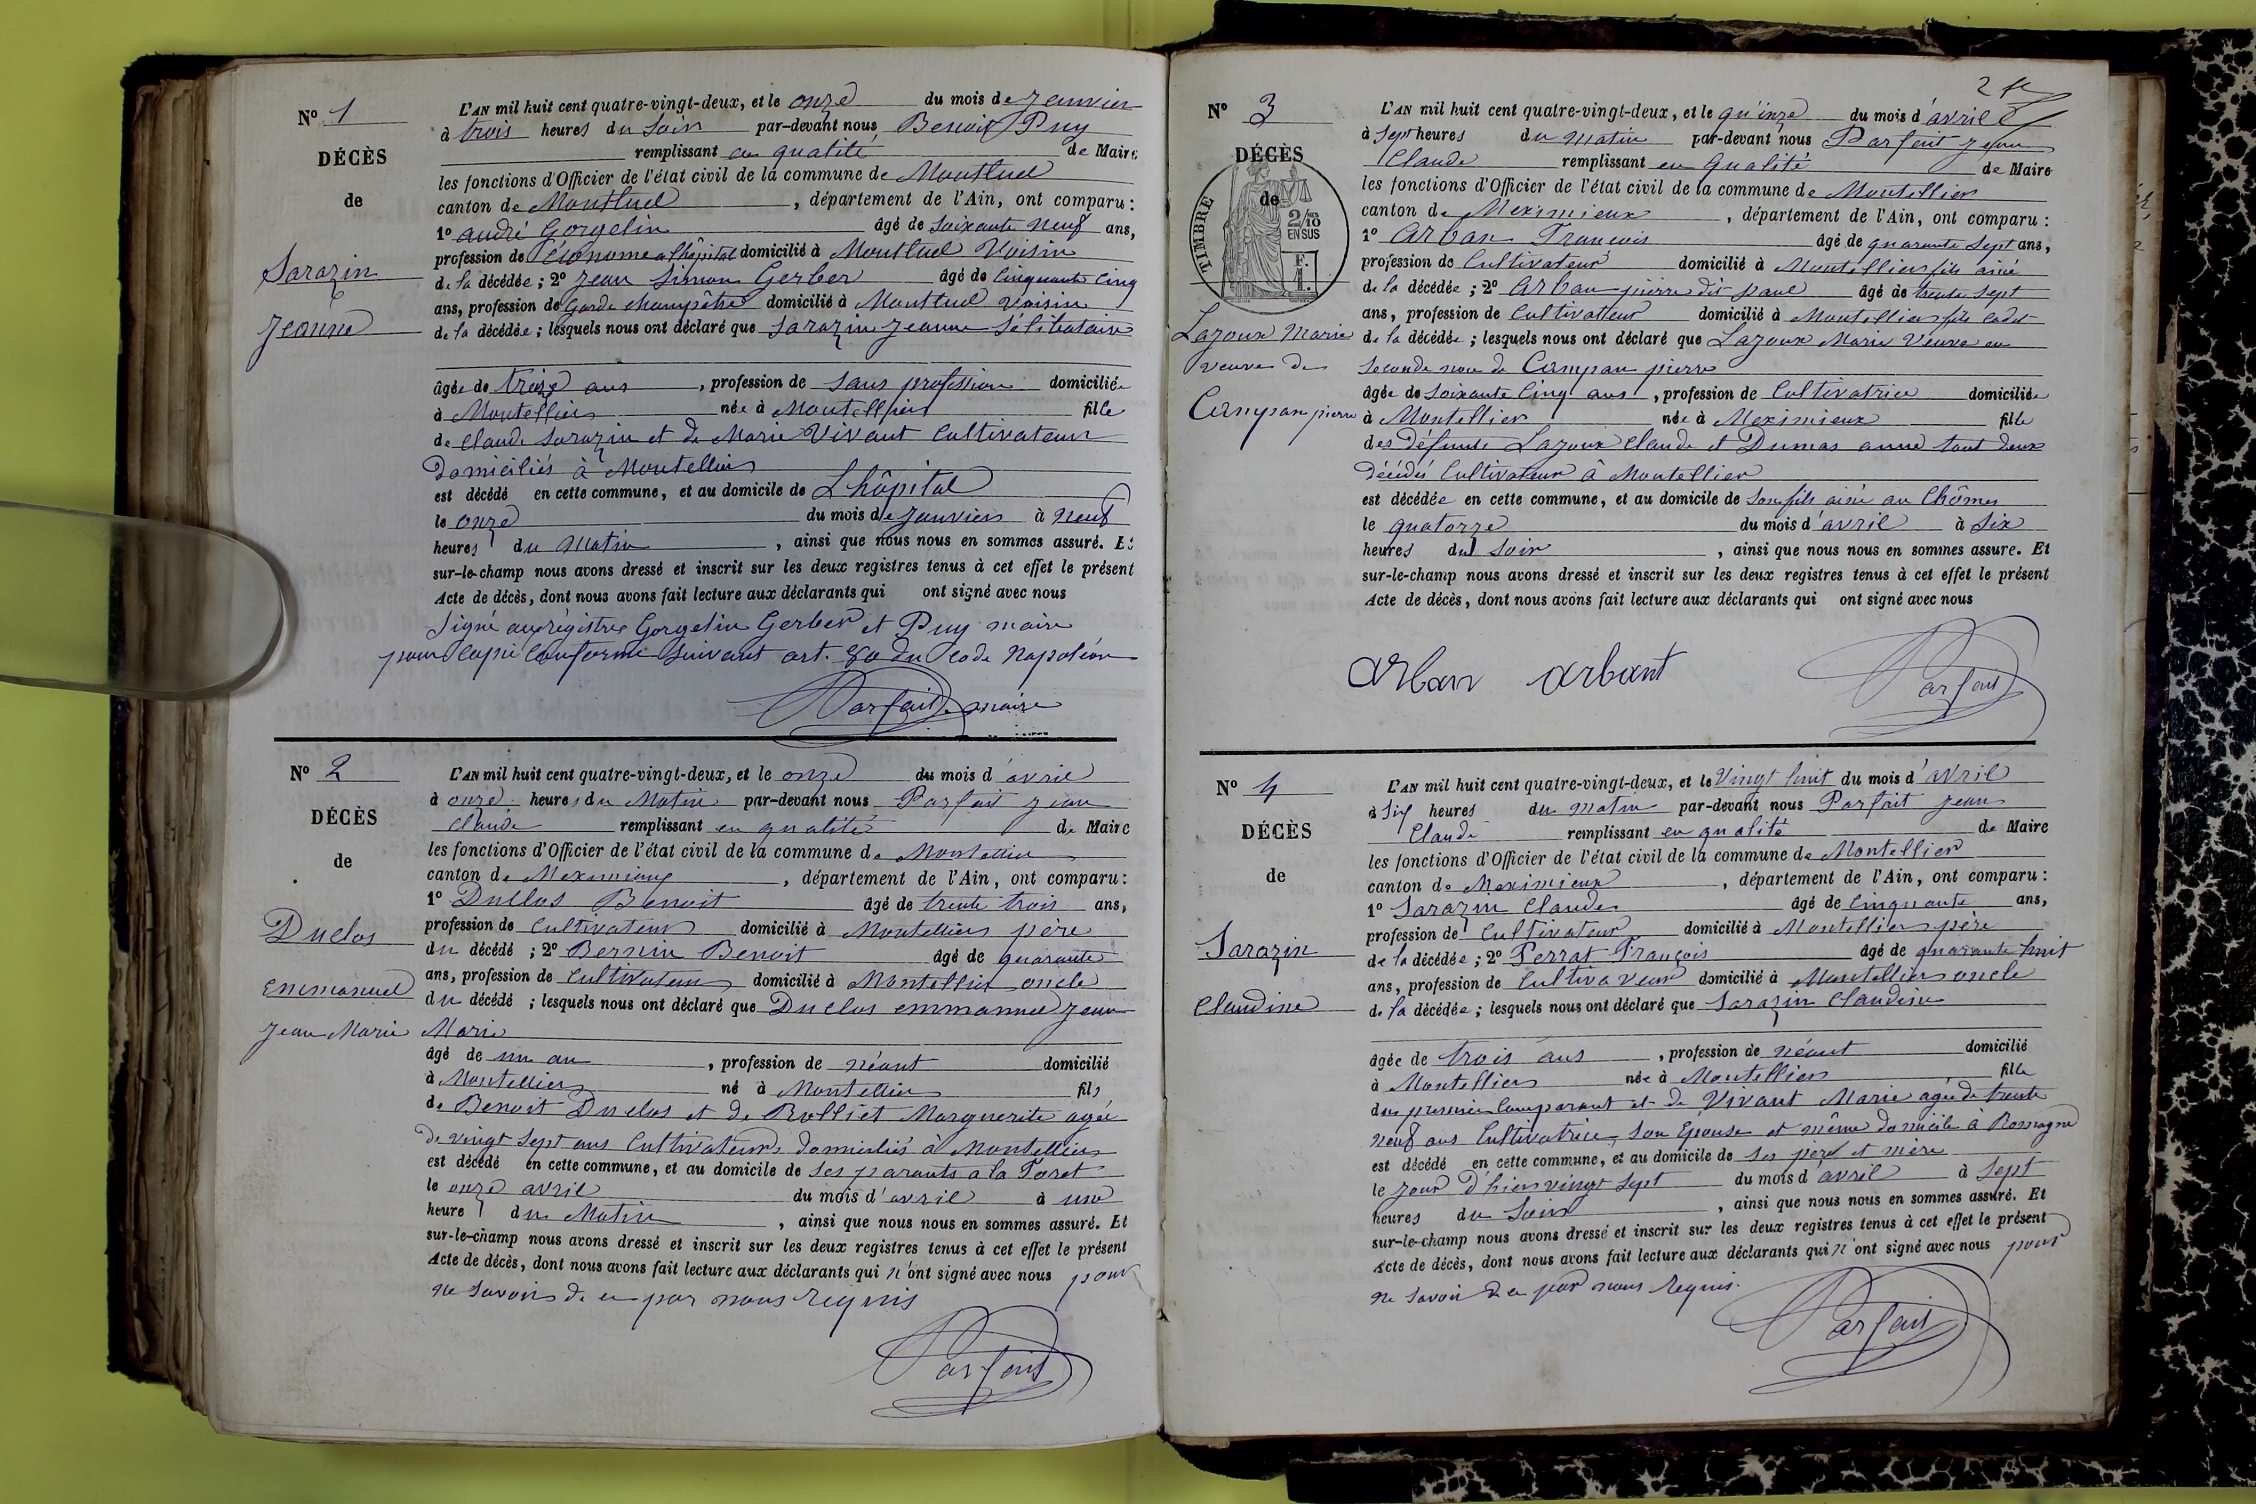 N° 1
DÉCÈS
de
Sarazin
Jeanne
L'AN mil huit cent quatre-vingt-deux, et le onze du mois de Janvier
à trois heures du Soir par-devant nous Benoit Puy
remplissant en qualité de Maire
les fonctions d'Officier de l'état civil de la commune de Montluel
canton de Montluel, département de l'Ain, ont comparu :
1° andré Gorgelin âgé de Soixante neuf ans,
profession de économe a l'hôpital domicilié à Montluel Voisin
de la décédée ; 2° Jean Simon Gerber âgé de Cinquante Cinq
ans, profession de Garde champêtre domicilié à Montluel Voisin
de la décédée ; lesquels nous ont déclaré que Sarazin Jeanne Sélibataire
âgée de treize ans, profession de Sans profession domiciliée
à Montellier née à Montellier fille
de Claude Sarazin et de Marie Vivant Cultivateur
Domiciliés à Montellier
est décédé en cette commune, et au domicile de L'hôpital
le onze du mois de Janvier à Neuf
heures du Matin, ainsi que nous nous en sommes assuré. Et
sur-le-champ nous avons dressé et inscrit sur les deux registres tenus à cet effet le présent
Acte de décès, dont nous avons fait lecture aux déclarants qui ont signé avec nous
Signé au régistre Gorgelin Gerber et Puy maire
pour Copie Conforme Suivant art. 80 du Code Napoléon
Parfait maire
N° 2
DÉCÈS
de
Duclos
Emmanuel
Jean Marie
L'AN mil huit cent quatre-vingt-deux, et le onze du mois d'avril
à onze heures du Matin par-devant nous Parfait Jean
Claude remplissant en qualité de Maire
les fonctions d'Officier de l'état civil de la commune de Montellier
canton de Meximieux, département de l'Ain, ont comparu :
1° Duclos Benoit âgé de trente trois ans,
profession de Cultivateur domicilié à Montellier père
du décédé ; 2° Bernin Benoit âgé de quarante
ans, profession de Cultivateur domicilié à Montellier oncle
du décédé ; lesquels nous ont déclaré que Duclos emmanuel Jean
Marie
âgé de un an, profession de néant domicilié
à Montellier né à Montellier fils
de Benoit Duclos et de Rolliet Marguerite agée
de vingt Sept ans Cultivateurs domiciliés à Montellier
est décédé en cette commune, et au domicile de Ses parants a la Foret
le onze avril du mois d'avril à une
heure du Matin, ainsi que nous nous en sommes assuré. Et
sur-le-champ nous avons dressé et inscrit sur les deux registres tenus à cet effet le présent
Acte de décès, dont nous avons fait lecture aux déclarants qui n'ont signé avec nous pour
ne Savoir de ce par nous requis
Parfait
2
N° 3
DÉCÈS
de
TIMBRE
2/10 EN SUS
F. 1.
Lazoux Marie
Veuve de
Campan pierre
L'AN mil huit cent quatre-vingt-deux, et le qu'inze du mois d'avril
à Sept heures du matin par-devant nous Parfait Jean
Claude remplissant en qualité de Maire
les fonctions d'Officier de l'état civil de la commune de Montellier
canton de Meximieux, département de l'Ain, ont comparu :
1° Arban François âgé de quarante Sept ans,
profession de Cultivateur domicilié à Montellier fils ainé
de la décédée ; 2° Arban pierre dit paul âgé de trente Sept
ans, profession de Cultivatteur domicilié à Montellier fils Cadet
de la décédée ; lesquels nous ont déclaré que Lazoux Marie Veuve en
Seconde noce de Campan pierre
âgée de Soixante Cinq ans, profession de Cultivatrice domiciliée
à Montellier née à Meximieux fille
des défunts Lazoux Claude et Dumas anne tout deux
Décédés Cultivateur à Montellier
est décédée en cette commune, et au domicile de Son fils ainé au Chômes
le quatorze du mois d'avril à Six
heures du Soir, ainsi que nous nous en sommes assuré. Et
sur-le-champ nous avons dressé et inscrit sur les deux registres tenus à cet effet le présent
Acte de décès, dont nous avons fait lecture aux déclarants qui ont signé avec nous
arban arbant Parfait
N° 4
DÉCÈS
de
Sarazin
Claudine
L'AN mil huit cent quatre-vingt-deux, et le Vingt huit du mois d'avril
à Six heures du matin par-devant nous Parfait Jean
Claude remplissant en qualité de Maire
les fonctions d'Officier de l'état civil de la commune de Montellier
canton de Meximieux, département de l'Ain, ont comparu :
1° Sarazin Claude âgé de Cinquante ans,
profession de Cultivateur domicilié à Montellier père
de la décédée ; 2° Perrat François âgé de quarante huit
ans, profession de Cultivateur domicilié à Montellier oncle
de la décédée ; lesquels nous ont déclaré que Sarazin Claudine
âgée de trois ans, profession de néant domicilié
à Montellier née à Montellier fille
du premier Comparant et de Vivant Marie agée de trente
neuf ans Cultivatrice, Son Epouse et même domicile à Romagne
est décédé en cette commune, et au domicile de Ses père et mère
le jour d'hier vingt Sept du mois d'avril à Sept
heures du Soir, ainsi que nous nous en sommes assuré. Et
sur-le-champ nous avons dressé et inscrit sur les deux registres tenus à cet effet le présent
Acte de décès, dont nous avons fait lecture aux déclarants qui n'ont signé avec nous pour
ne Savoir de ce par nous Requis.
Parfait